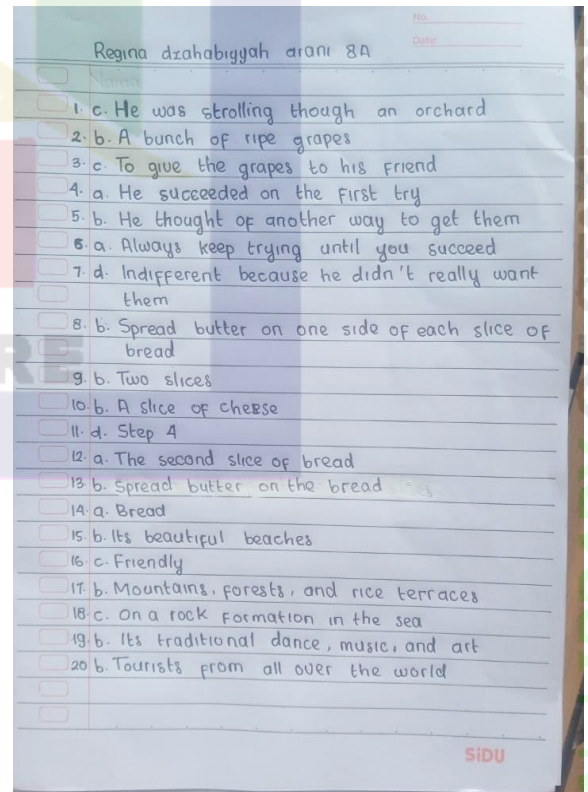 No.
Date:
Regina dzahabiyyah arani 8A
1. c. He was strolling though an orchard
2. b. A bunch of ripe grapes
3. c. To give the grapes to his friend
4. a. He succeeded on the first try
5. b. He thought of another way to get them
6. a. Always keep trying until you succeed
7. d. Indifferent because he didn't really want
them
8. b. Spread butter on one side of each slice of
bread
9. b. Two slices
10. b. A slice of cheese
11. d. Step 4
12. a. The second slice of bread
13. b. Spread butter on the bread
14. a. Bread
15. b. Its beautiful beaches
16. c. Friendly
17. b. Mountains, forests, and rice terraces
18. c. On a rock formation in the sea
19. b. Its traditional dance, music, and art
20 b. Tourists from all over the world
SiDU